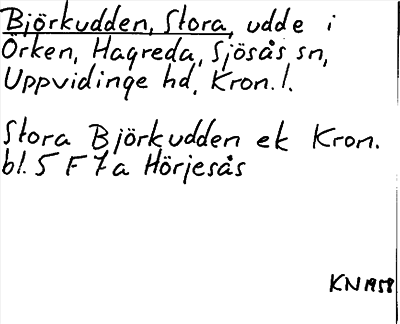 Björkudden, Stora, udde i
Örken, Hagreda, Sjösås sn,
Uppvidinge hd, Kron. l.
Stora Björkudden ek Kron.
bl. 5 F 7 a Hörjesås
KN 1958